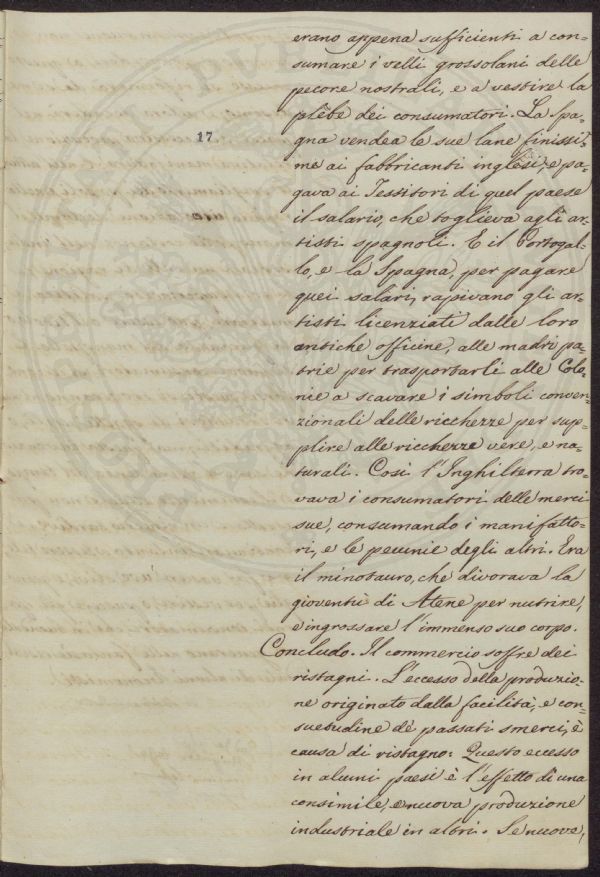 erano appena sufficienti a con=
sumare i velli grossolani delle
pecore nostrali, e a vestire la
plebe dei consumatori. La Spa=
17
gna vendea le sue lane finissi=
me ai fabbricanti inglesi, e pa=
gava ai Tessitori di quel paese
il salario, che toglieva agli ar=
tisti spagnoli. E il Portogal=
lo, e la Spagna, per pagare
quei salari, rapivano gli ar=
tisti licenziati dalle loro
antiche officine, alle madri pa=
trie per trasportarli alle Colo=
nie a scavare i simboli conven=
zionali delle ricchezze per sup=
plire alle ricchezze vere, e na=
turali. Così l'Inghilterra tro=
vava i consumatori delle merci
sue, consumando i manifatto=
ri, e le pecunie degli altri. Era
il minotauro, che divorava la
gioventù di Atene per nutrire,
e ingrossare l'immenso suo corpo.
Concludo. Il commercio soffre dei
ristagni. L'eccesso della produzio=
ne originato dalla facilità, e con=
suetudine de' passati smerci, è
causa di ristagno: Questo eccesso
in alcuni paesi è l'effetto di una
consimile, e nuova produzione
industriale in altri. Se nuove,